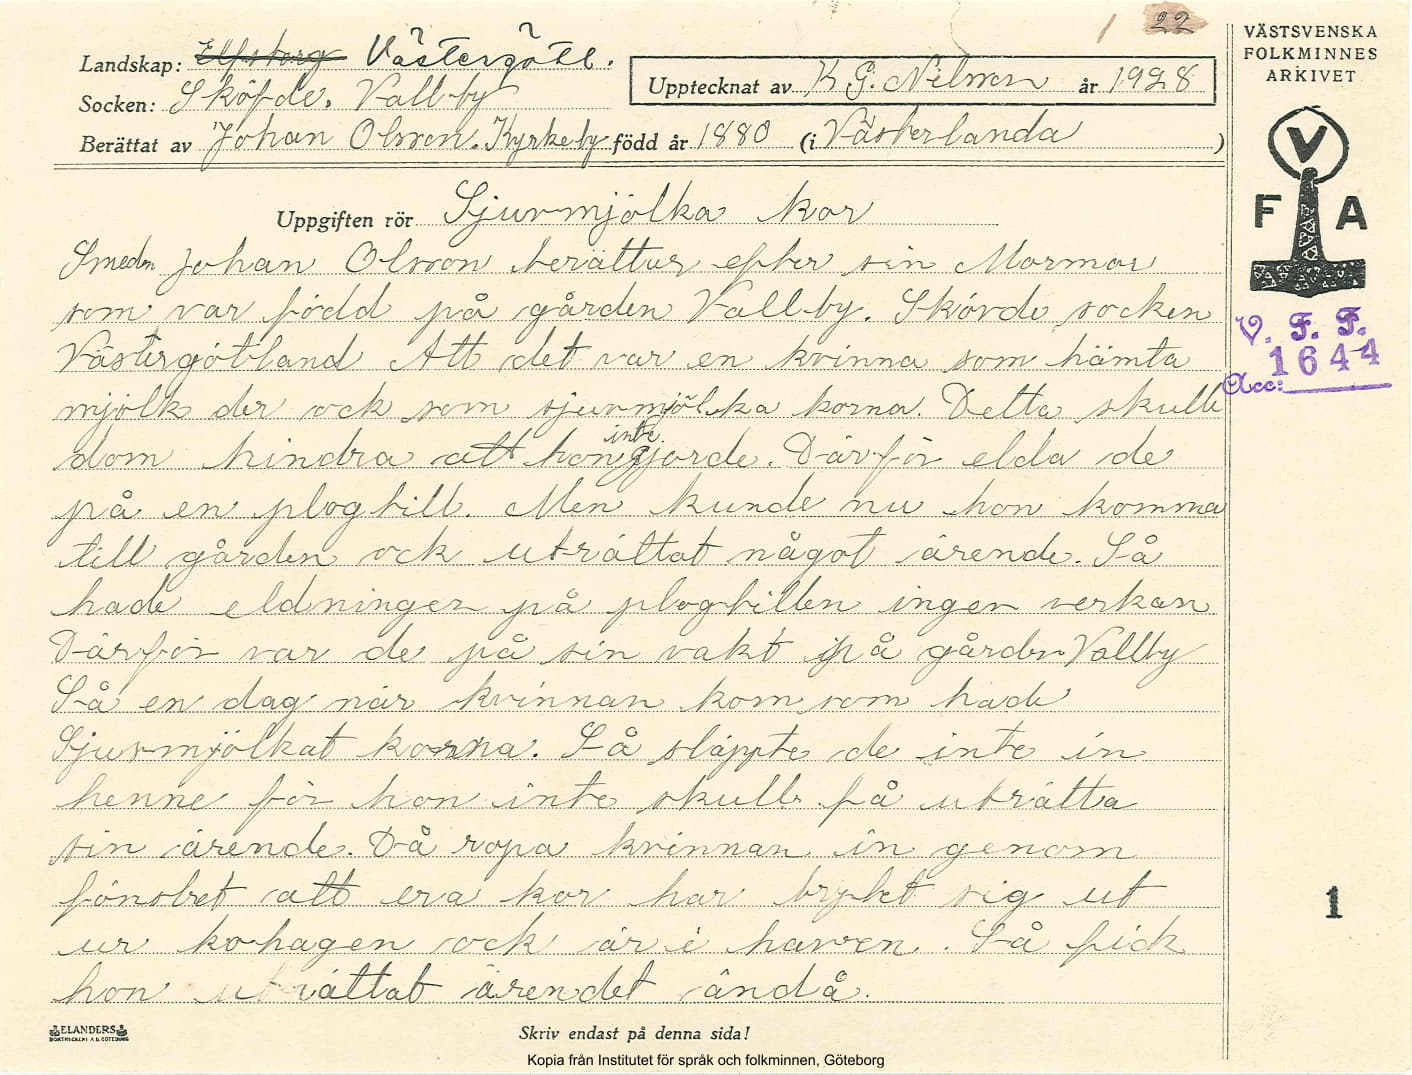 1 22
VÄSTSVENSKA
FOLKMINNES
ARKIVET
Landskap: Elfsborg Västergötl.
Socken: Sköfde. Vallby
Upptecknat av K G. Nilsson år 1928
Berättat av Johan Olsson. Kyrkeby född år 1880 (i Västerlanda )
V
F A
Uppgiften rör Sjurmjölka kor
Smeden Johan Olsson berättar efter sin Mormor
som var född på gården Vallby. Skövde socken
Västergötland Att det var en kvinna som hämta
mjölk der ock som sjurmjölka korna. Detta skulle
dom hindra att hon inte gjorde. Därför elda de
på en plogbill. Men kunde nu hon komma
till gården ock uträttat något ärende. Så
hade eldningen på plogbillen ingen verkan
Därför var de på sin vakt på gården Vallby
Så en dag när kvinnan kom som hade
Sjurmjölkat korna. Så släppte de inte in
henne för hon inte skulle få uträtta
sin ärende. Då ropa kvinnan in genom
fönstret att era kor har brykt sig ut
ur kohagen ock är i havren. Så fick
hon uträttat ärendet ändå.
V. F. F.
1644
Acc:
1
ELANDERS
BOKTRYCKERI A.B. GÖTEBORG
Skriv endast på denna sida!
Kopia från Institutet för språk och folkminnen, Göteborg